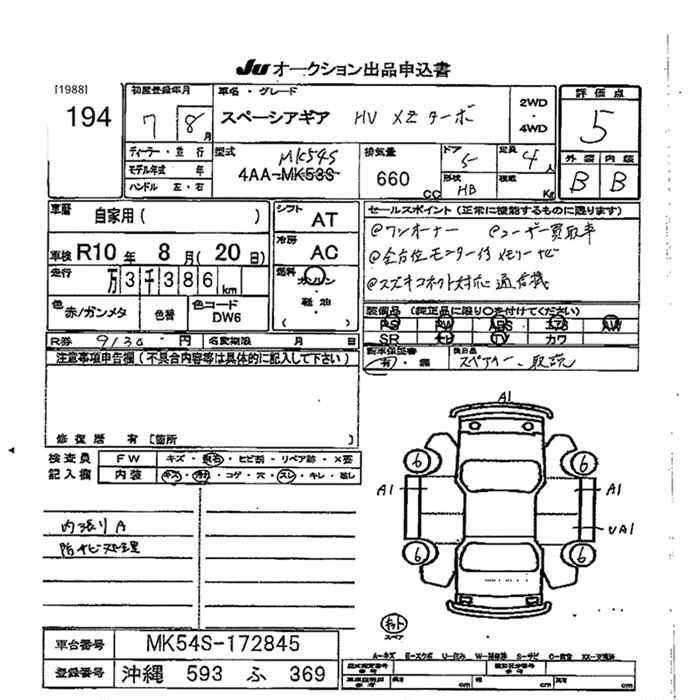 JU オークション出品申込書
[1988]
194
初度登録年月
7 8 月
車名・グレード
スペーシアギア HV XZ ターボ
2WD
・
4WD
評価点
5
外装 内装
B B
ディーラー・並行
モデル年式 年
ハンドル 左・右
型式
MK54S
4AA-MK53S
排気量
660 CC
ドア
5
形状
HB
定員
4 人
積載
Kg
車歴
自家用( )
車検 R10 年 8 月( 20 日)
走行
万 3 千 3 8 6 km
色
赤/ガンメタ
色替
色コード
DW6
シフト
AT
冷房
AC
燃料
ガソリン
・
軽油
( )
セールスポイント(正常に機能するものに限ります)
@ワンオーナー @ユーザー買取車
@全方位モニター付メモリーナビ
@スズキコネクト対応通信機
装備品(純正品に限り○を付けてください)
PS PW ABS エアB AW
SR ナビ TV カワ
新車保証書
有・無
後日品
スペアキー、取説
R券 9130 円
名変期限 月 日
注意事項申告欄(不具合内容等は具体的に記入して下さい)
修復歴 有 [箇所 ]
検査員
記入欄
FW キズ・飛石・ヒビ割・リペア跡・×要
内装 キズ・汚れ・コゲ・穴・スレ・キレ・臭し
内張りA
防サビ処理
A1
6 6
A1 A1
UA1
6 6
スペア
A-キズ E-エクボ U-凹み W-補修跡 S-サビ C-腐食 XX-交換済
車台番号 MK54S-172845
登録番号 沖縄 593 ふ 369
長さ cm 幅 cm 高さ cm